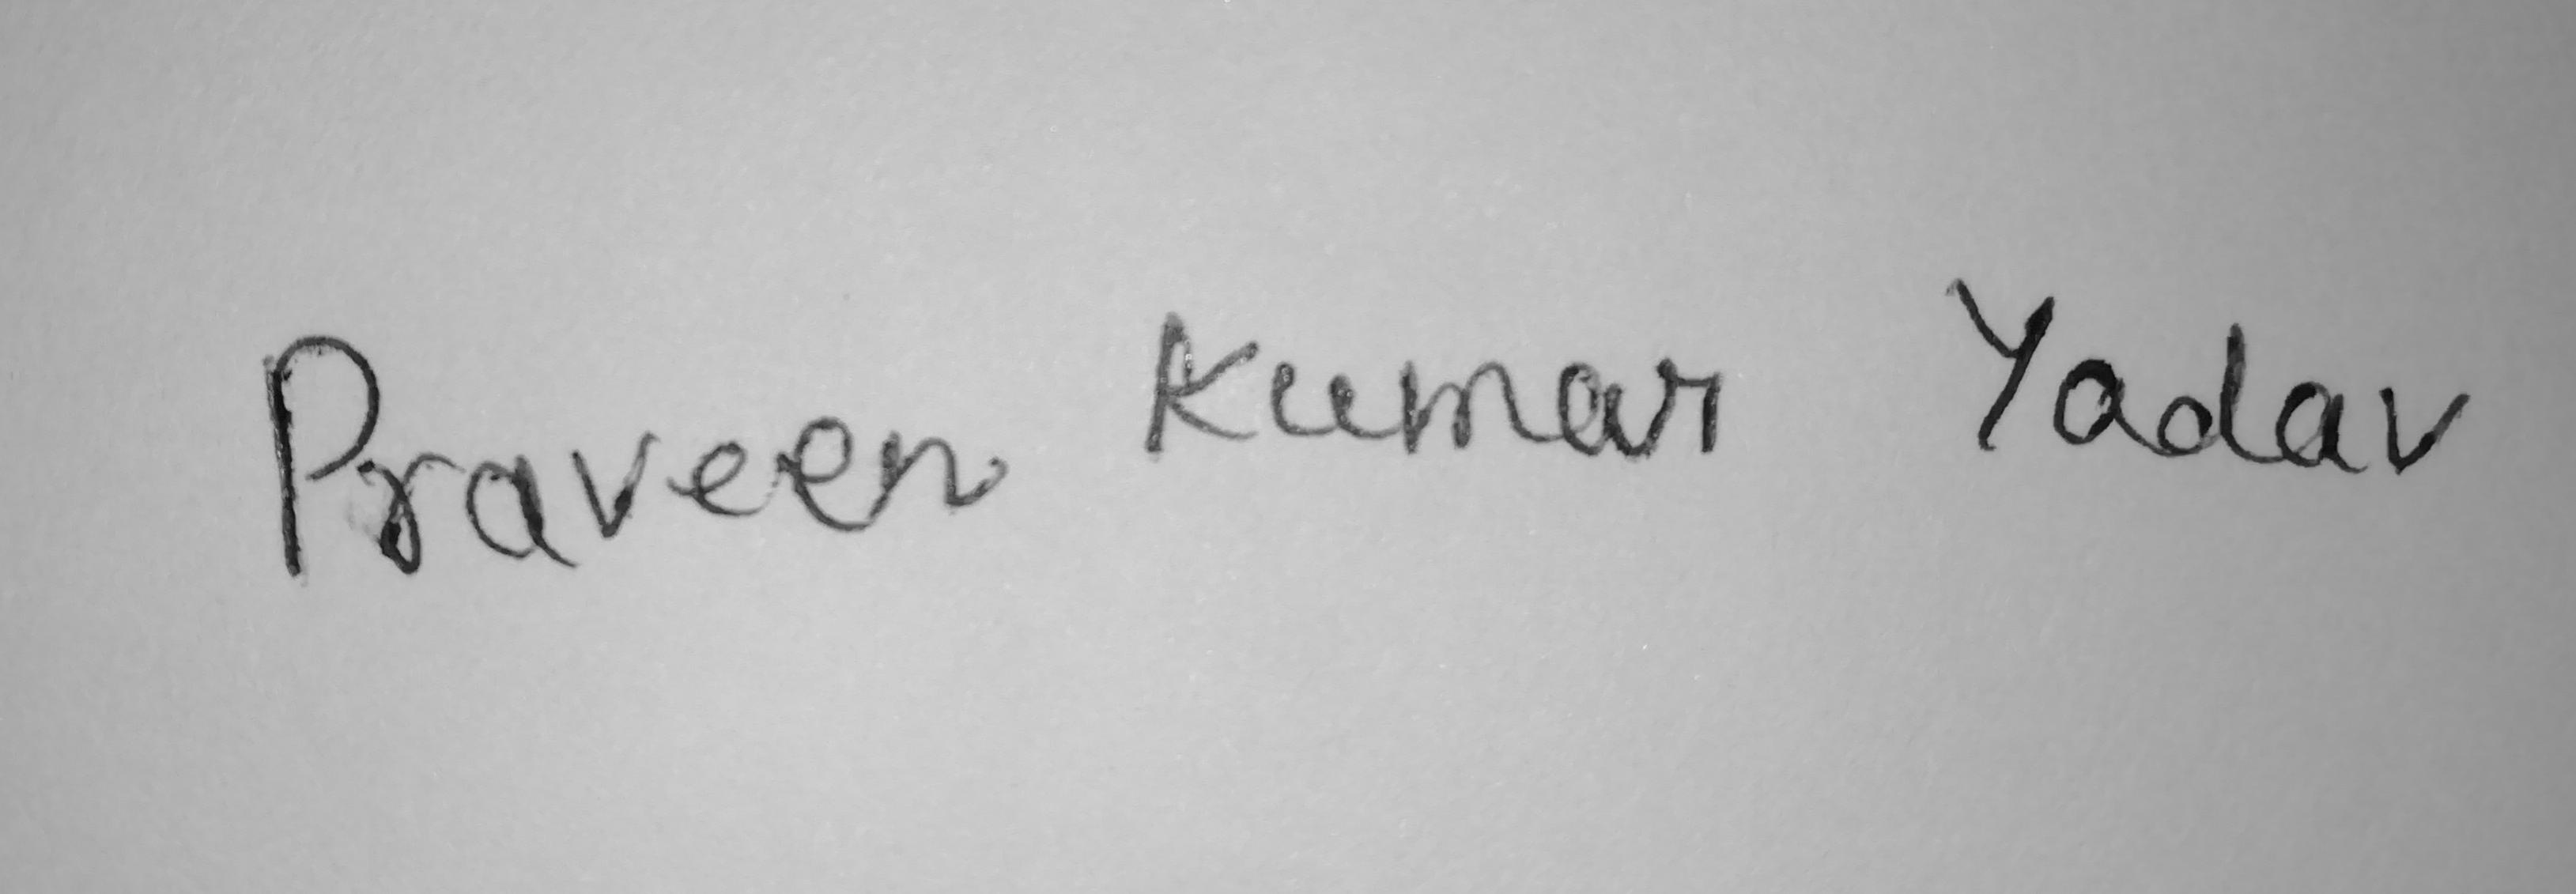 Praveen Kumar Yadav